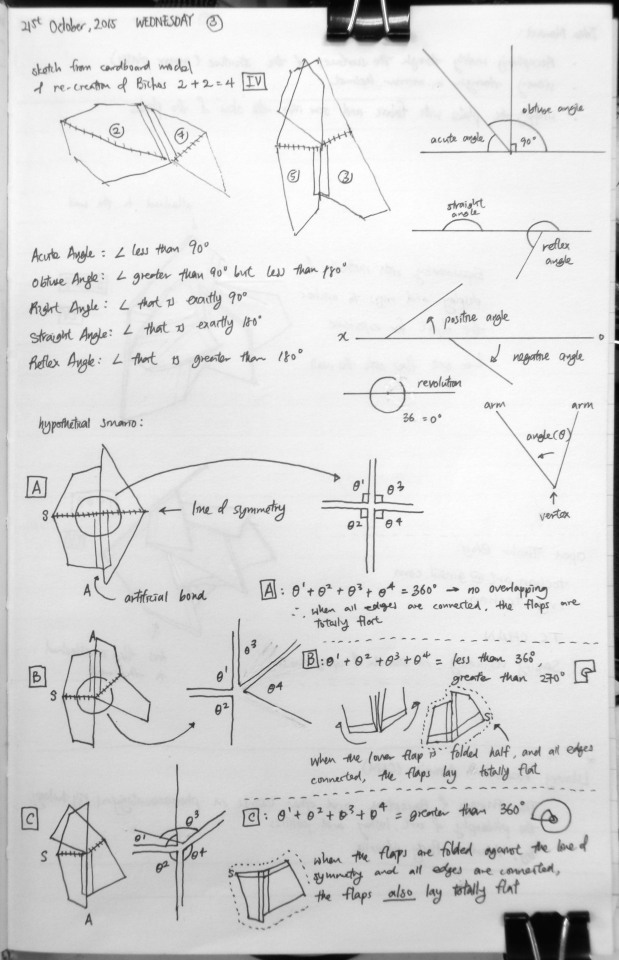 21st October, 2015 WEDNESDAY ③
sketch from cardboard model
of re-creation of Bichos 2+2=4 IV
② ④
⑤ ③
obtuse angle
acute angle 90°
straight
angle
reflex
angle
Acute Angle: ∠ less than 90°
Obtuse Angle: ∠ greater than 90° but less than 180°
Right Angle: ∠ that is exactly 90°
Straight Angle: ∠ that is exactly 180°
Reflex Angle: ∠ that is greater than 180°
positive angle
x o
negative angle
revolution
36 = 0°
arm arm
angle (θ)
vertex
hypothetical scenario:
A
S
line of symmetry
A
artificial bond
θ1 θ3
θ2 θ4
A: θ1 + θ2 + θ3 + θ4 = 360° → no overlapping
∴ when all edges are connected, the flaps are
totally flat
B
A
S
θ1 θ3
θ2 θ4
B: θ1 + θ2 + θ3 + θ4 = less than 360°,
greater than 270°
A
S
when the lower flap is folded half, and all edges
connected, the flaps lay totally flat
C
S
A
θ1 θ3
θ2 θ4
C: θ1 + θ2 + θ3 + θ4 = greater than 360°
S
when the flaps are folded against the line of
symmetry and all edges are connected,
the flaps also lay totally flat